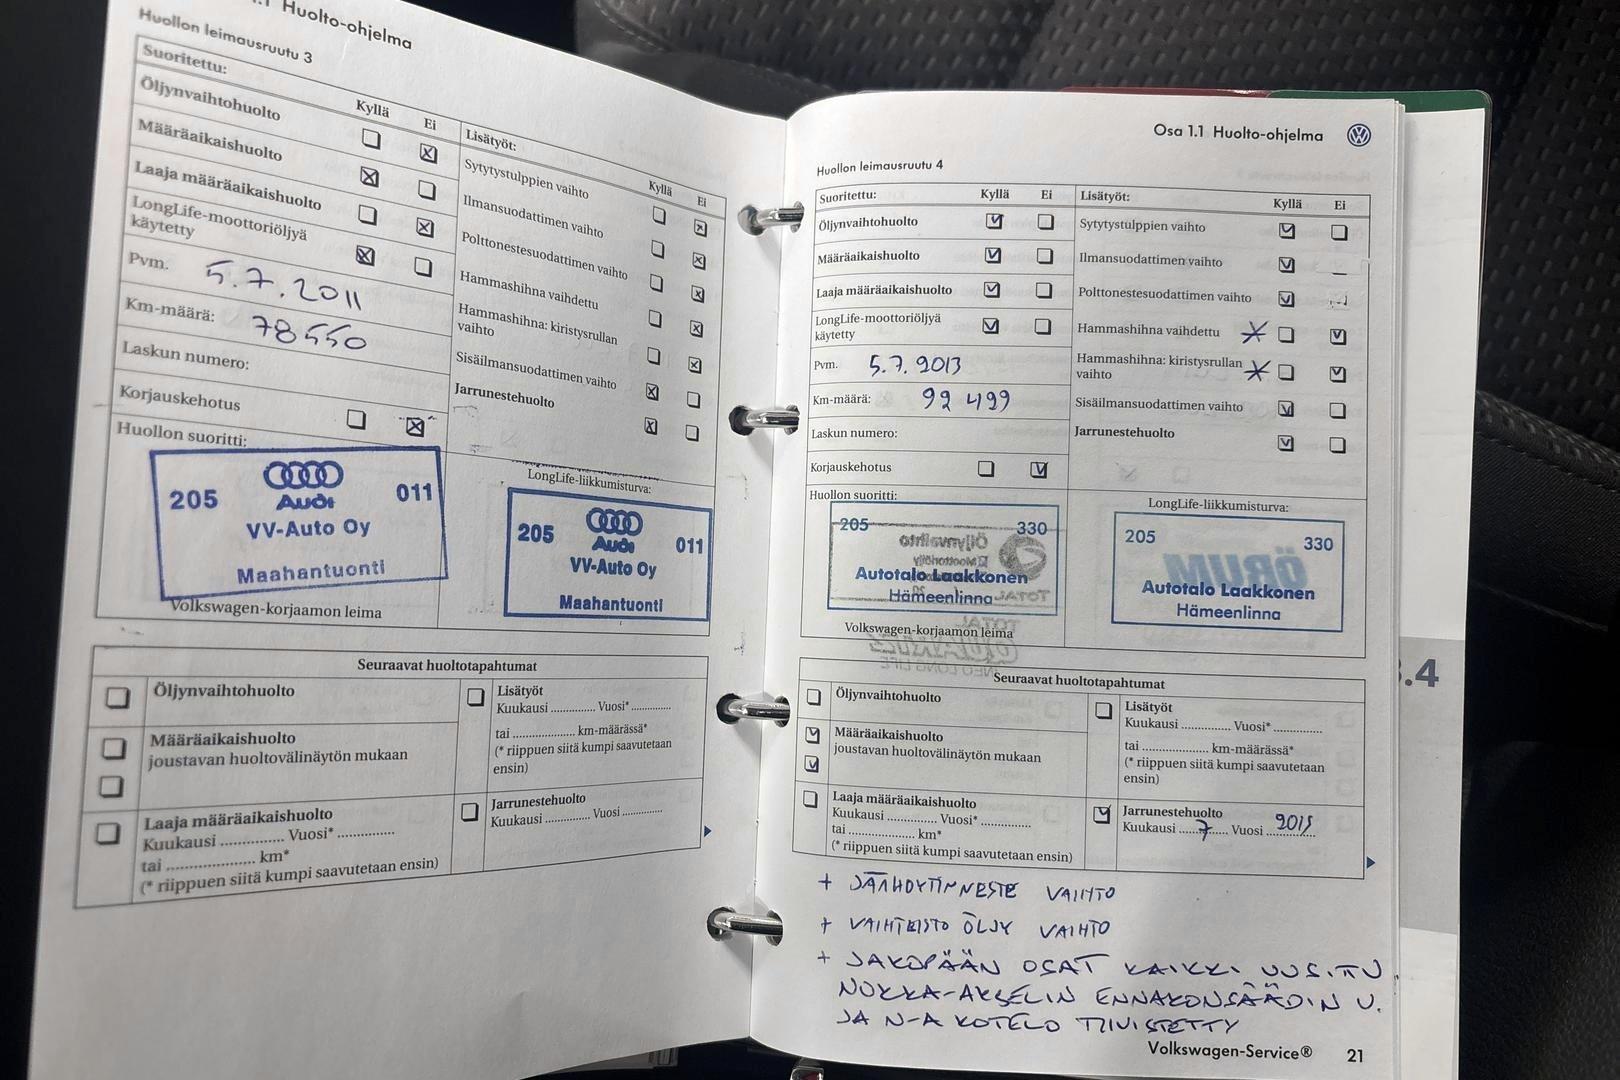 1.1 Huolto-ohjelma
Huollon leimausruutu 3
Suoritettu:
Kyllä
Ei
Öljynvaihtohuolto
Määräaikaishuolto
Laaja määräaikaishuolto
LongLife-moottoriöljyä
käytetty
Pvm. 5.7.2011
Km-määrä: 78550
Laskun numero:
Korjauskehotus
Huollon suoritti:
205 Audi 011
VV-Auto Oy
Maahantuonti
Volkswagen-korjaamon leima
Lisätyöt:
Kyllä
Ei
Sytytystulppien vaihto
Ilmansuodattimen vaihto
Polttonestesuodattimen vaihto
Hammashihna vaihdettu
Hammashihna: kiristysrullan
vaihto
Sisäilmansuodattimen vaihto
Jarrunestehuolto
LongLife-liikkumisturva:
205 Audi 011
VV-Auto Oy
Maahantuonti
Seuraavat huoltotapahtumat
Öljynvaihtohuolto
Määräaikaishuolto
joustavan huoltovälinäytön mukaan
Laaja määräaikaishuolto
Kuukausi ............ Vuosi* ............
tai ................ km*
(* riippuen siitä kumpi saavutetaan ensin)
Lisätyöt
Kuukausi ............ Vuosi* ............
tai ................ km-määrässä*
(* riippuen siitä kumpi saavutetaan
ensin)
Jarrunestehuolto
Kuukausi ............ Vuosi ............
Osa 1.1 Huolto-ohjelma
Huollon leimausruutu 4
Suoritettu:
Kyllä
Ei
Öljynvaihtohuolto
Määräaikaishuolto
Laaja määräaikaishuolto
LongLife-moottoriöljyä
käytetty
Pvm. 5.7.2013
Km-määrä: 92 499
Laskun numero:
Korjauskehotus
Huollon suoritti:
205 330
Autotalo Laakkonen
Hämeenlinna
Volkswagen-korjaamon leima
Lisätyöt:
Kyllä
Ei
Sytytystulppien vaihto
Ilmansuodattimen vaihto
Polttonestesuodattimen vaihto
Hammashihna vaihdettu
Hammashihna: kiristysrullan
vaihto
Sisäilmansuodattimen vaihto
Jarrunestehuolto
LongLife-liikkumisturva:
205 330
Autotalo Laakkonen
Hämeenlinna
Seuraavat huoltotapahtumat
Öljynvaihtohuolto
Määräaikaishuolto
joustavan huoltovälinäytön mukaan
Laaja määräaikaishuolto
Kuukausi ............ Vuosi* ............
tai ................ km*
(* riippuen siitä kumpi saavutetaan ensin)
Lisätyöt
Kuukausi ............ Vuosi* ............
tai ................ km-määrässä*
(* riippuen siitä kumpi saavutetaan
ensin)
Jarrunestehuolto
Kuukausi ....7.... Vuosi 2015
+ JÄÄHDYTINNESTE VAIHTO
+ VAIHTEISTO ÖLJY VAIHTO
+ JAKOPÄÄN OSAT KAIKKI UUSITTU,
NOKKA-AKSELIN ENNAKONSÄÄDIN U.
JA N-A KOTELO TIIVISTETTY
Volkswagen-Service® 21
.4